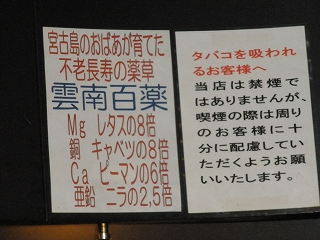 宮古島のおばあが育てた
不老長寿の薬草
雲南百薬
Mg レタスの8倍
銅 キャベツの8倍
Ca ピーマンの6倍
亜鉛 ニラの2,5倍
タバコを吸われ
るお客様へ
当店は禁煙で
はありませんが、
喫煙の際は周り
のお客様に十
分に配慮してい
ただくようお願
いいたします。